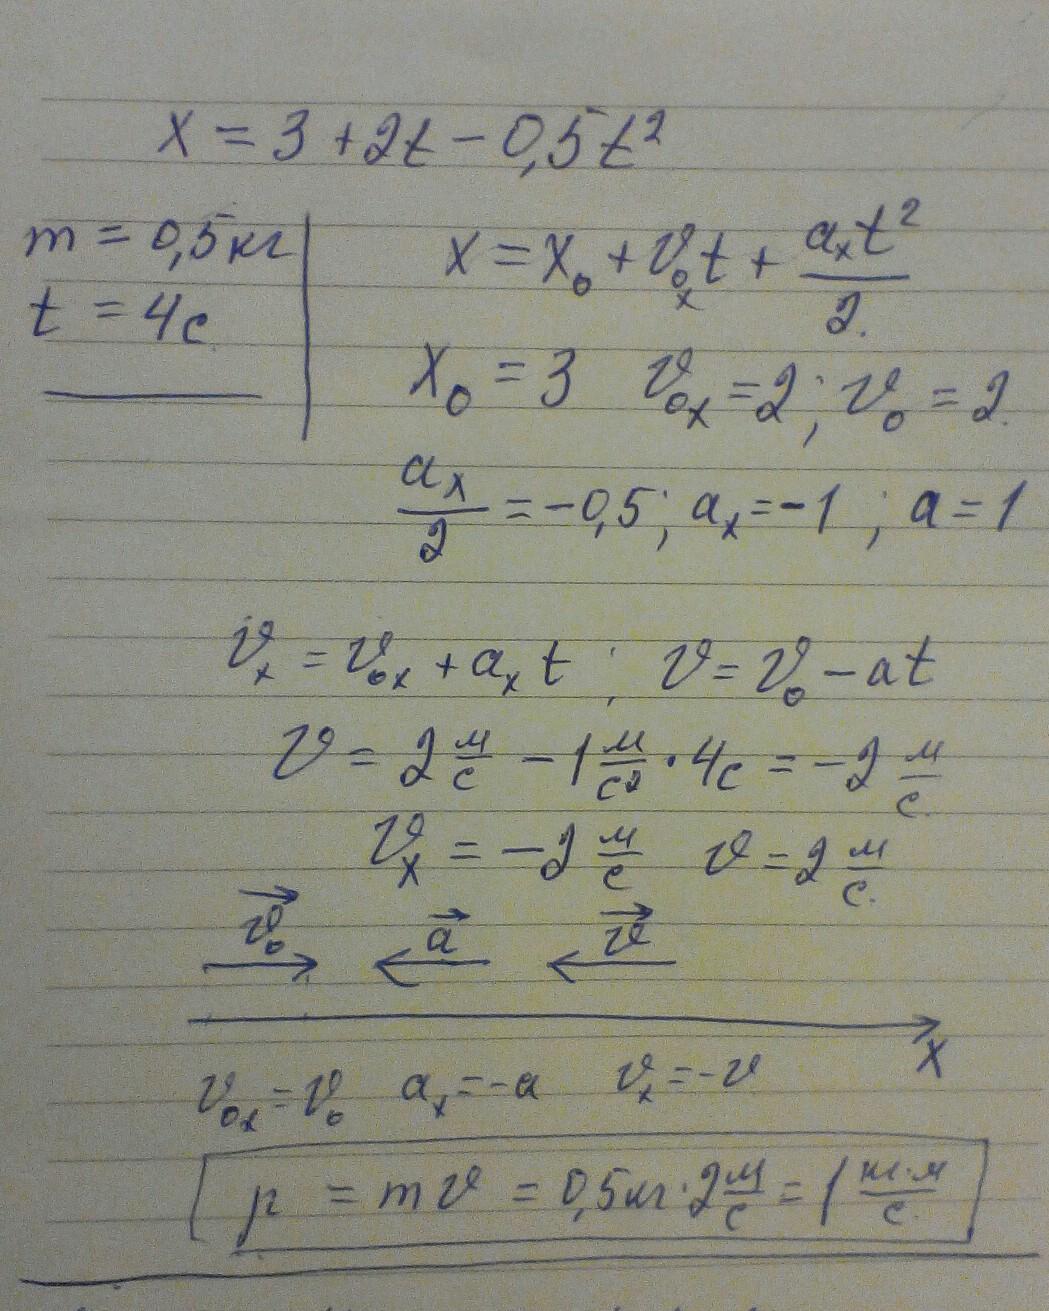 x = 3 + 2t − 0,5t²
m = 0,5 кг
t = 4с
x = x₀ + v₀ₓt + aₓt²/2.
x₀ = 3 v₀ₓ = 2; v₀ = 2.
aₓ/2 = −0,5; aₓ = −1 ; a = 1
vₓ = v₀ₓ + aₓt ; v = v₀ − at
v = 2 м/с − 1 м/с² · 4с = −2 м/с.
vₓ = −2 м/с v = 2 м/с.
v⃗₀ a⃗ v⃗
x
v₀ₓ = v₀ aₓ = −a vₓ = −v
p = mv = 0,5кг · 2 м/с = 1 кг·м/с